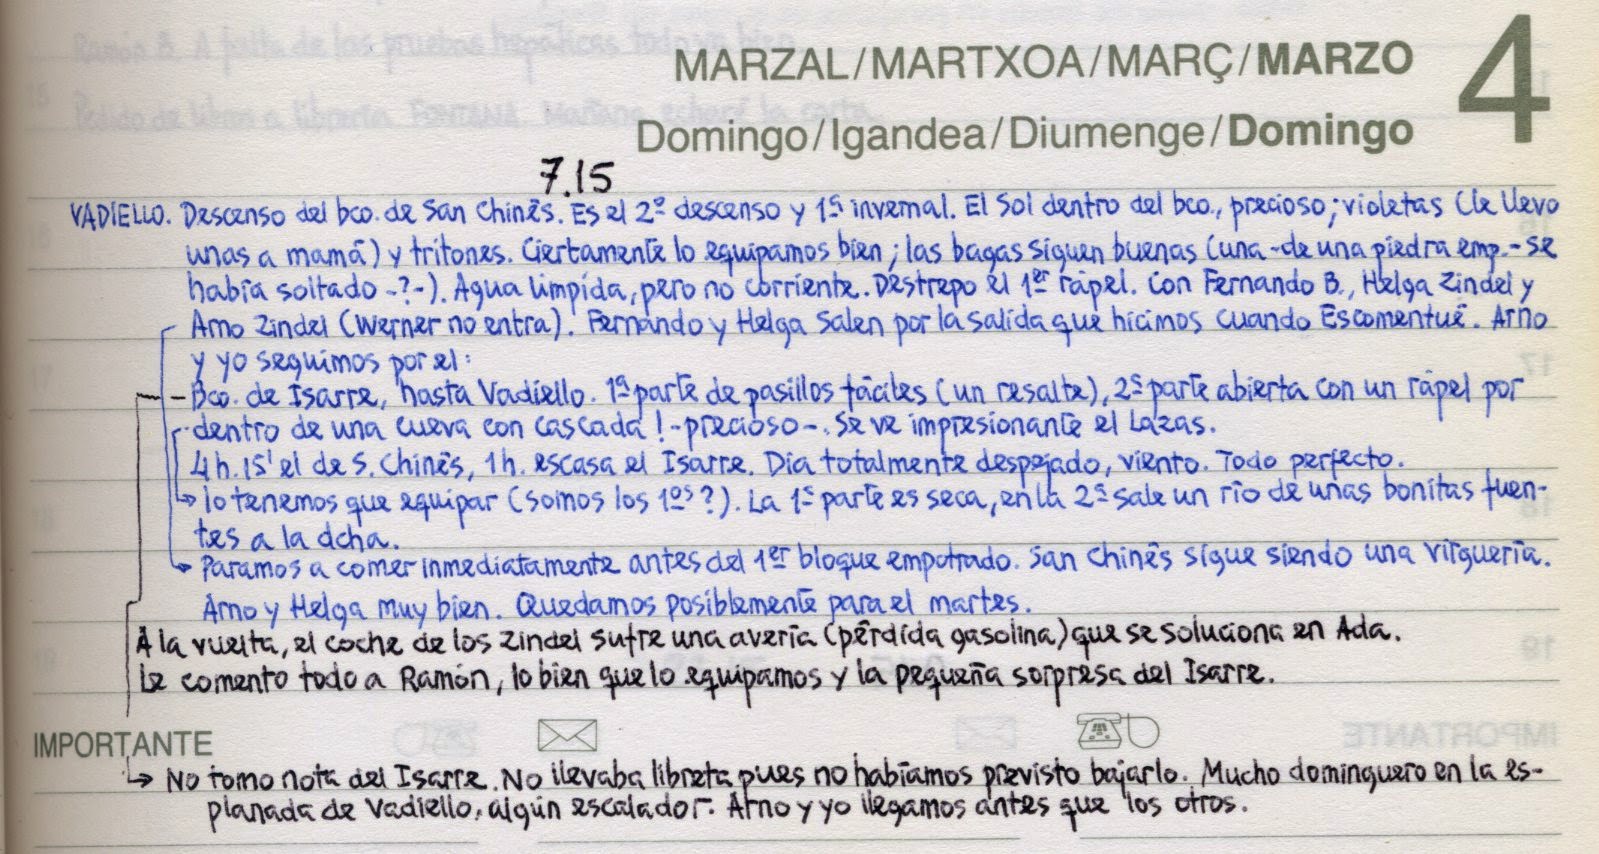 Ramón B. A falta de las pruebas hepáticas todo va bien.
MARZAL/MARTXOA/MARÇ/MARZO 4
Pedido de libros a librería FONTANA. Mañana echaré la carta.
Domingo/Igandea/Diumenge/Domingo
7.15
VADIELLO. Descenso del bco. de San Chinés. Es el 2º descenso y 1ª invernal. El Sol dentro del bco., precioso; violetas (le llevo
unas a mamá) y tritones. Ciertamente lo equipamos bien; las bagas siguen buenas (una -de una piedra emp.- se
había soltado -?-). Agua límpida, pero no corriente. Destrepo el 1er rápel. Con Fernando B., Helga Zindel y
Arno Zindel (Werner no entra). Fernando y Helga salen por la salida que hicimos cuando Escomentué. Arno
y yo seguimos por el:
- Bco. de Isarre, hasta Vadiello. 1ª parte de pasillos fáciles (un resalte), 2ª parte abierta con un rápel por
dentro de una cueva con cascada! -precioso-. Se ve impresionante el Lazas.
4h. 15' el de S. Chinés, 1h. escasa el Isarre. Día totalmente despejado, viento. Todo perfecto.
lo tenemos que equipar (somos los 1os?). La 1ª parte es seca, en la 2ª sale un río de unas bonitas fuen-
tes a la dcha.
Paramos a comer inmediatamente antes del 1er bloque empotrado. San Chinés sigue siendo una virguería.
Arno y Helga muy bien. Quedamos posiblemente para el martes.
A la vuelta, el coche de los Zindel sufre una avería (pérdida gasolina) que se soluciona en Ada.
Le comento todo a Ramón, lo bien que lo equipamos y la pequeña sorpresa del Isarre.
IMPORTANTE
No tomo nota del Isarre. No llevaba libreta pues no habíamos previsto bajarlo. Mucho dominguero en la es-
planada de Vadiello, algún escalador. Arno y yo llegamos antes que los otros.